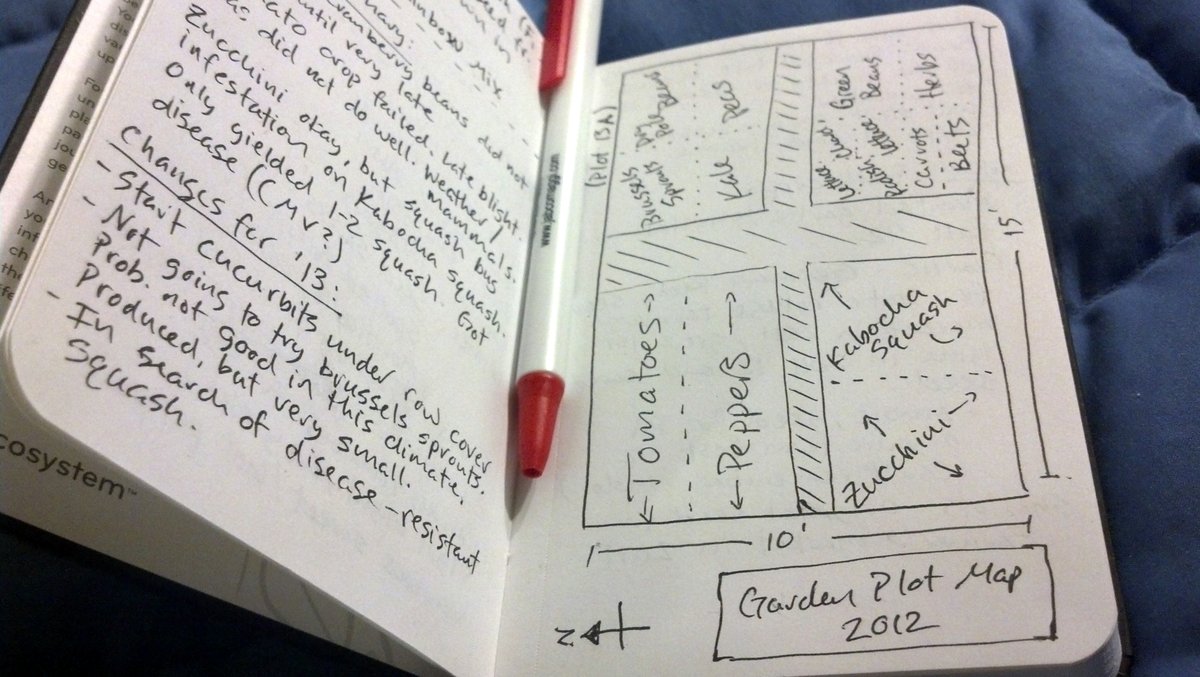 Mix
cranberry beans did not
until very late
crop failed. Late blight.
did not do well. Weather/mammals.
Zucchini okay, but squash bug
infestation on Kabocha squash.
Only yielded 1-2 squash. Got
disease (CMV?)
Changes for '13:
- Start cucurbits under row cover
- Not going to try brussels sprouts.
Prob. not good in this climate.
Produced, but very small.
- In search of disease-resistant
squash.
cosystem™
(Plot 13A)
Brussels Sprouts
Beans
Kale
Peas
Lettuce, Chard,
Radish, Lettuce
Green Beans
Carrots
Herbs
Beets
Tomatoes
Peppers
Kabocha Squash
Zucchini
15'
10'
N
Garden Plot Map
2012